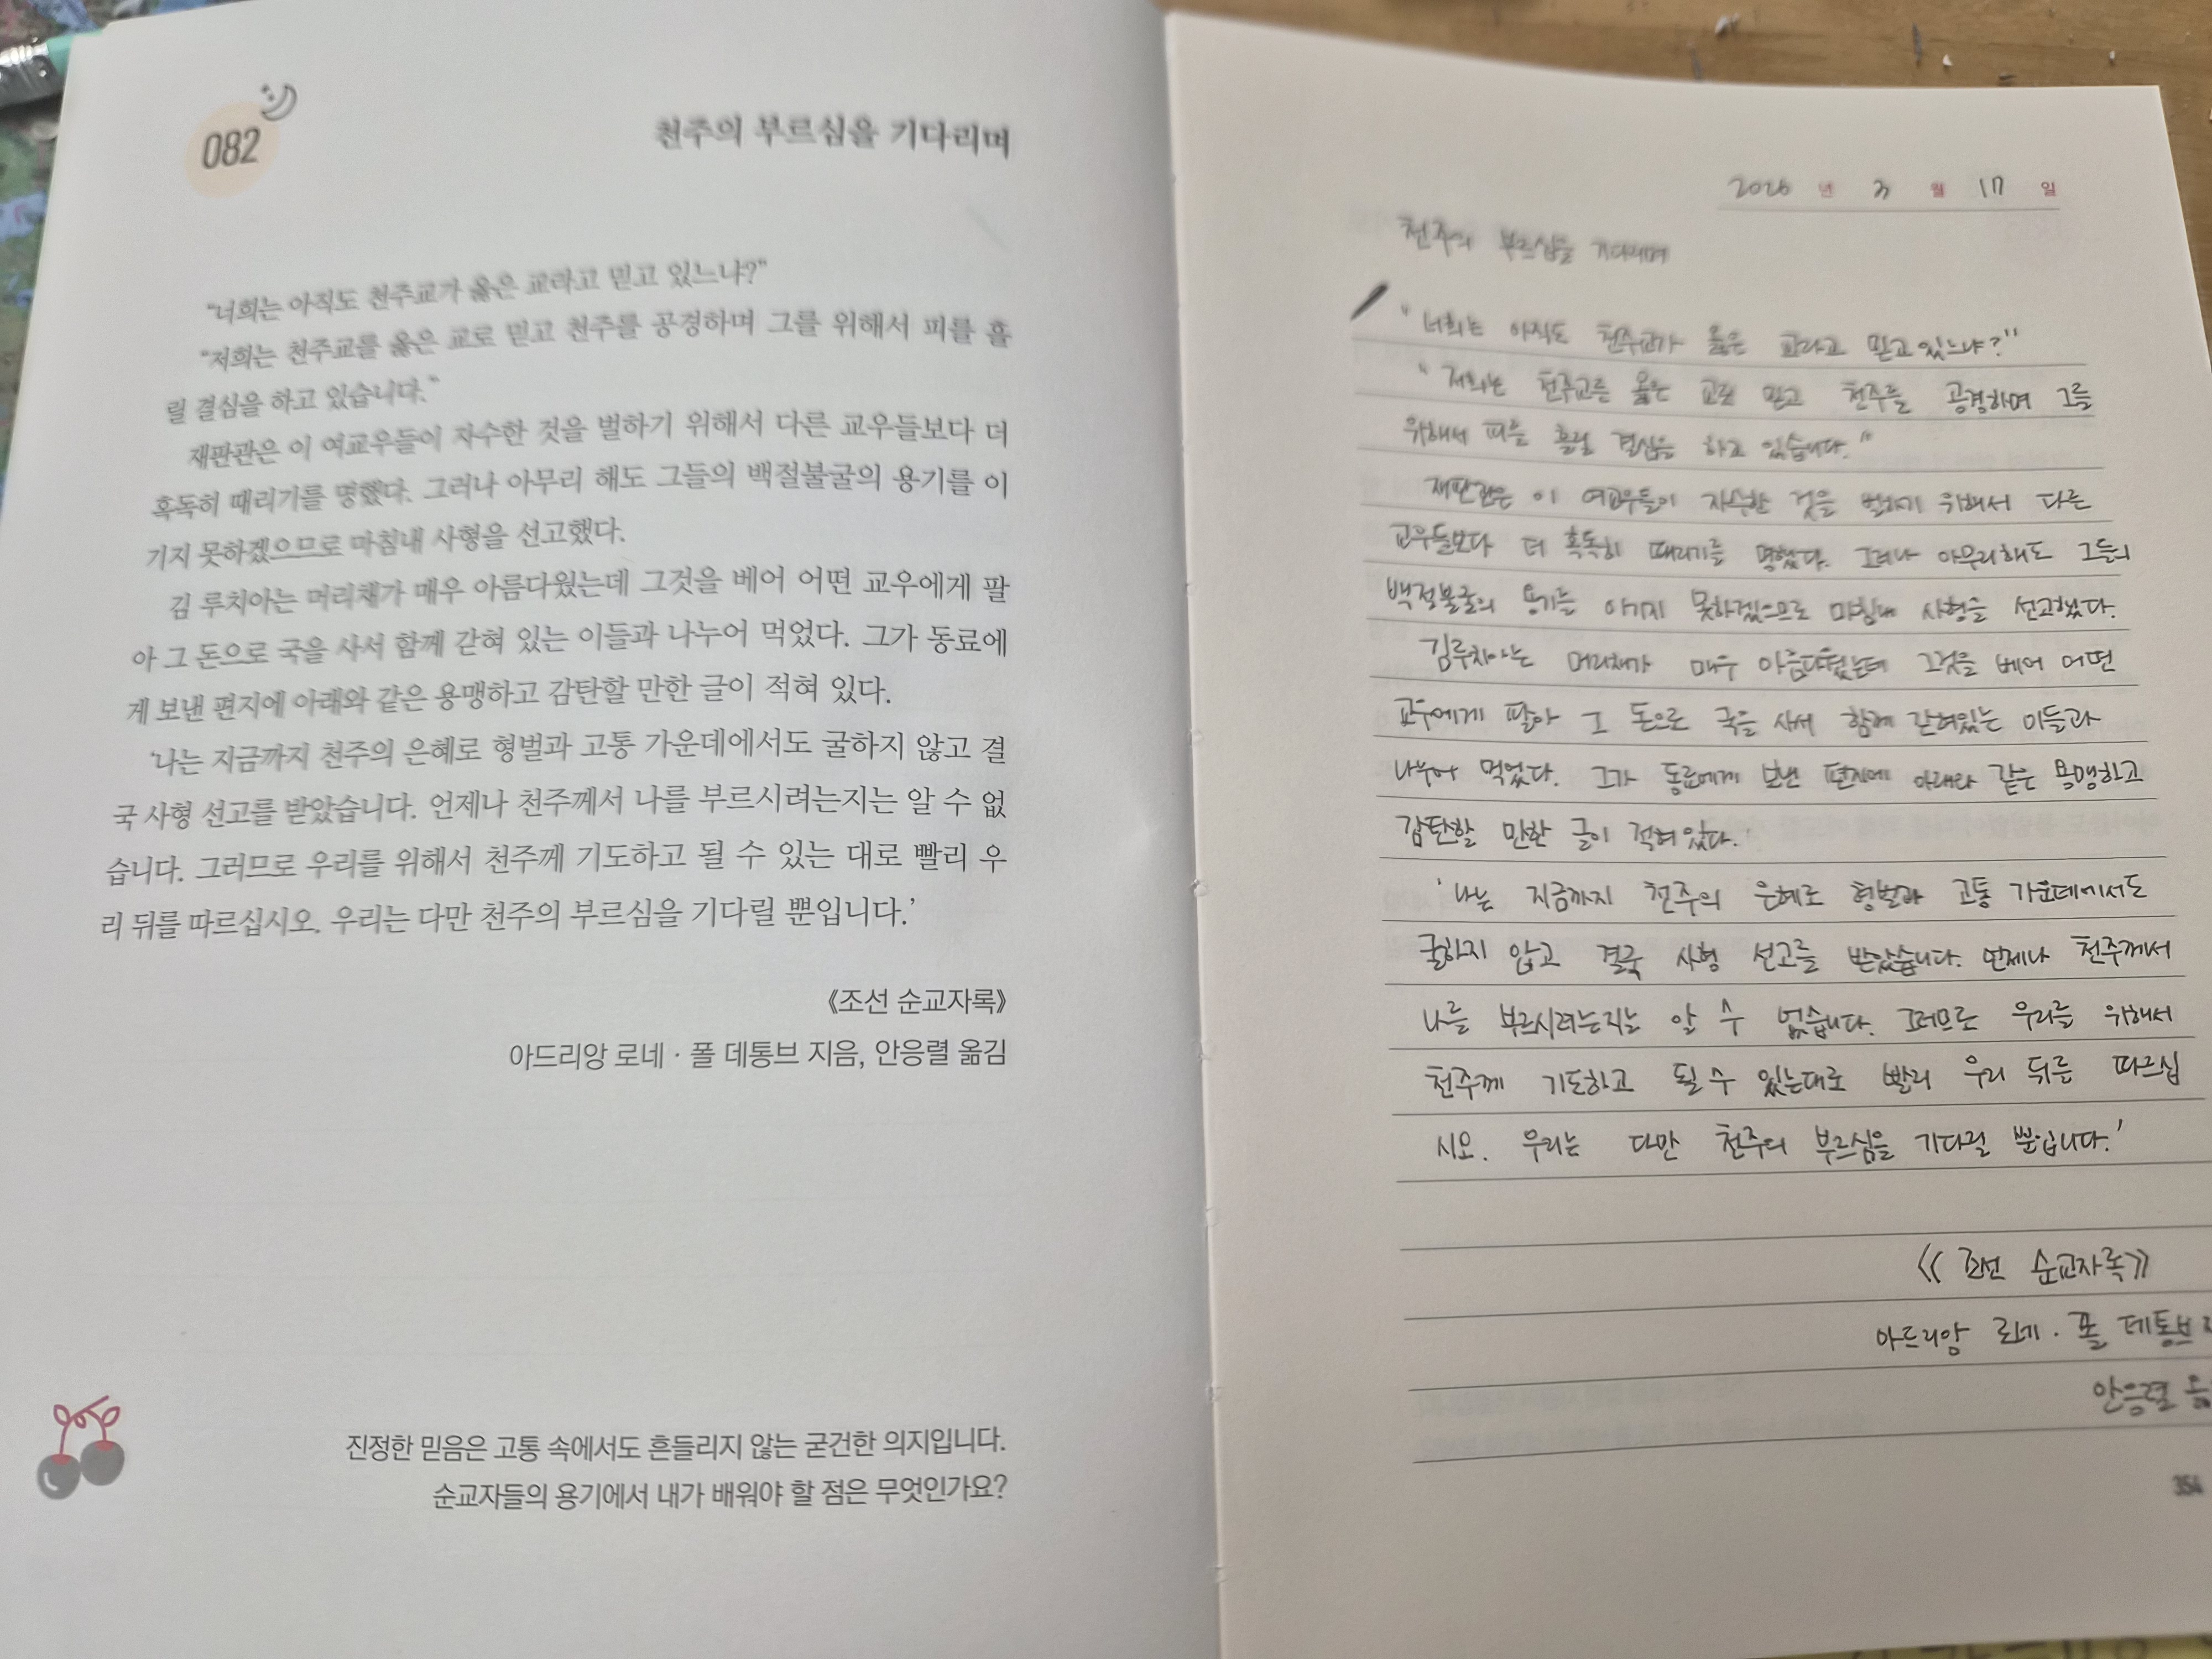 082
천주의 부르심을 기다리며
“너희는 아직도 천주교가 옳은 교라고 믿고 있느냐?”
“저희는 천주교를 옳은 교로 믿고 천주를 공경하며 그를 위해서 피를 흘
릴 결심을 하고 있습니다.”
재판관은 이 여교우들이 자수한 것을 벌하기 위해서 다른 교우들보다 더
혹독히 때리기를 명했다. 그러나 아무리 해도 그들의 백절불굴의 용기를 이
기지 못하겠으므로 마침내 사형을 선고했다.
김 루치아는 머리채가 매우 아름다웠는데 그것을 베어 어떤 교우에게 팔
아 그 돈으로 국을 사서 함께 갇혀 있는 이들과 나누어 먹었다. 그가 동료에
게 보낸 편지에 아래와 같은 용맹하고 감탄할 만한 글이 적혀 있다.
‘나는 지금까지 천주의 은혜로 형벌과 고통 가운데에서도 굴하지 않고 결
국 사형 선고를 받았습니다. 언제나 천주께서 나를 부르시려는지는 알 수 없
습니다. 그러므로 우리를 위해서 천주께 기도하고 될 수 있는 대로 빨리 우
리 뒤를 따르십시오. 우리는 다만 천주의 부르심을 기다릴 뿐입니다.’
《조선 순교자록》
아드리앙 로네 · 폴 데통브 지음, 안응렬 옮김
진정한 믿음은 고통 속에서도 흔들리지 않는 굳건한 의지입니다.
순교자들의 용기에서 내가 배워야 할 점은 무엇인가요?
2026 년 3 월 17 일
천주의 부르심을 기다리며
“너희는 아직도 천주교가 옳은 교라고 믿고 있느냐?”
“저희는 천주교를 옳은 교로 믿고 천주를 공경하며 그를
위해서 피를 흘릴 결심을 하고 있습니다.”
재판관은 이 여교우들이 자수한 것을 벌하기 위해서 다른
교우들보다 더 혹독히 때리기를 명했다. 그러나 아무리해도 그들의
백절불굴의 용기를 이기지 못하겠으므로 마침내 사형을 선고했다.
김루치아는 머리채가 매우 아름다웠는데 그것을 베어 어떤
교우에게 팔아 그 돈으로 국을 사서 함께 갇혀있는 이들과
나누어 먹었다. 그가 동료에게 보낸 편지에 아래와 같은 용맹하고
감탄할 만한 글이 적혀있다.
‘나는 지금까지 천주의 은혜로 형벌과 고통 가운데에서도
굴하지 않고 결국 사형 선고를 받았습니다. 언제나 천주께서
나를 부르시려는지는 알 수 없습니다. 그러므로 우리를 위해서
천주께 기도하고 될 수 있는대로 빨리 우리 뒤를 따르십
시오. 우리는 다만 천주의 부르심을 기다릴 뿐입니다.’
《조선 순교자록》
아드리앙 로네 · 폴 데통브
안응렬
354